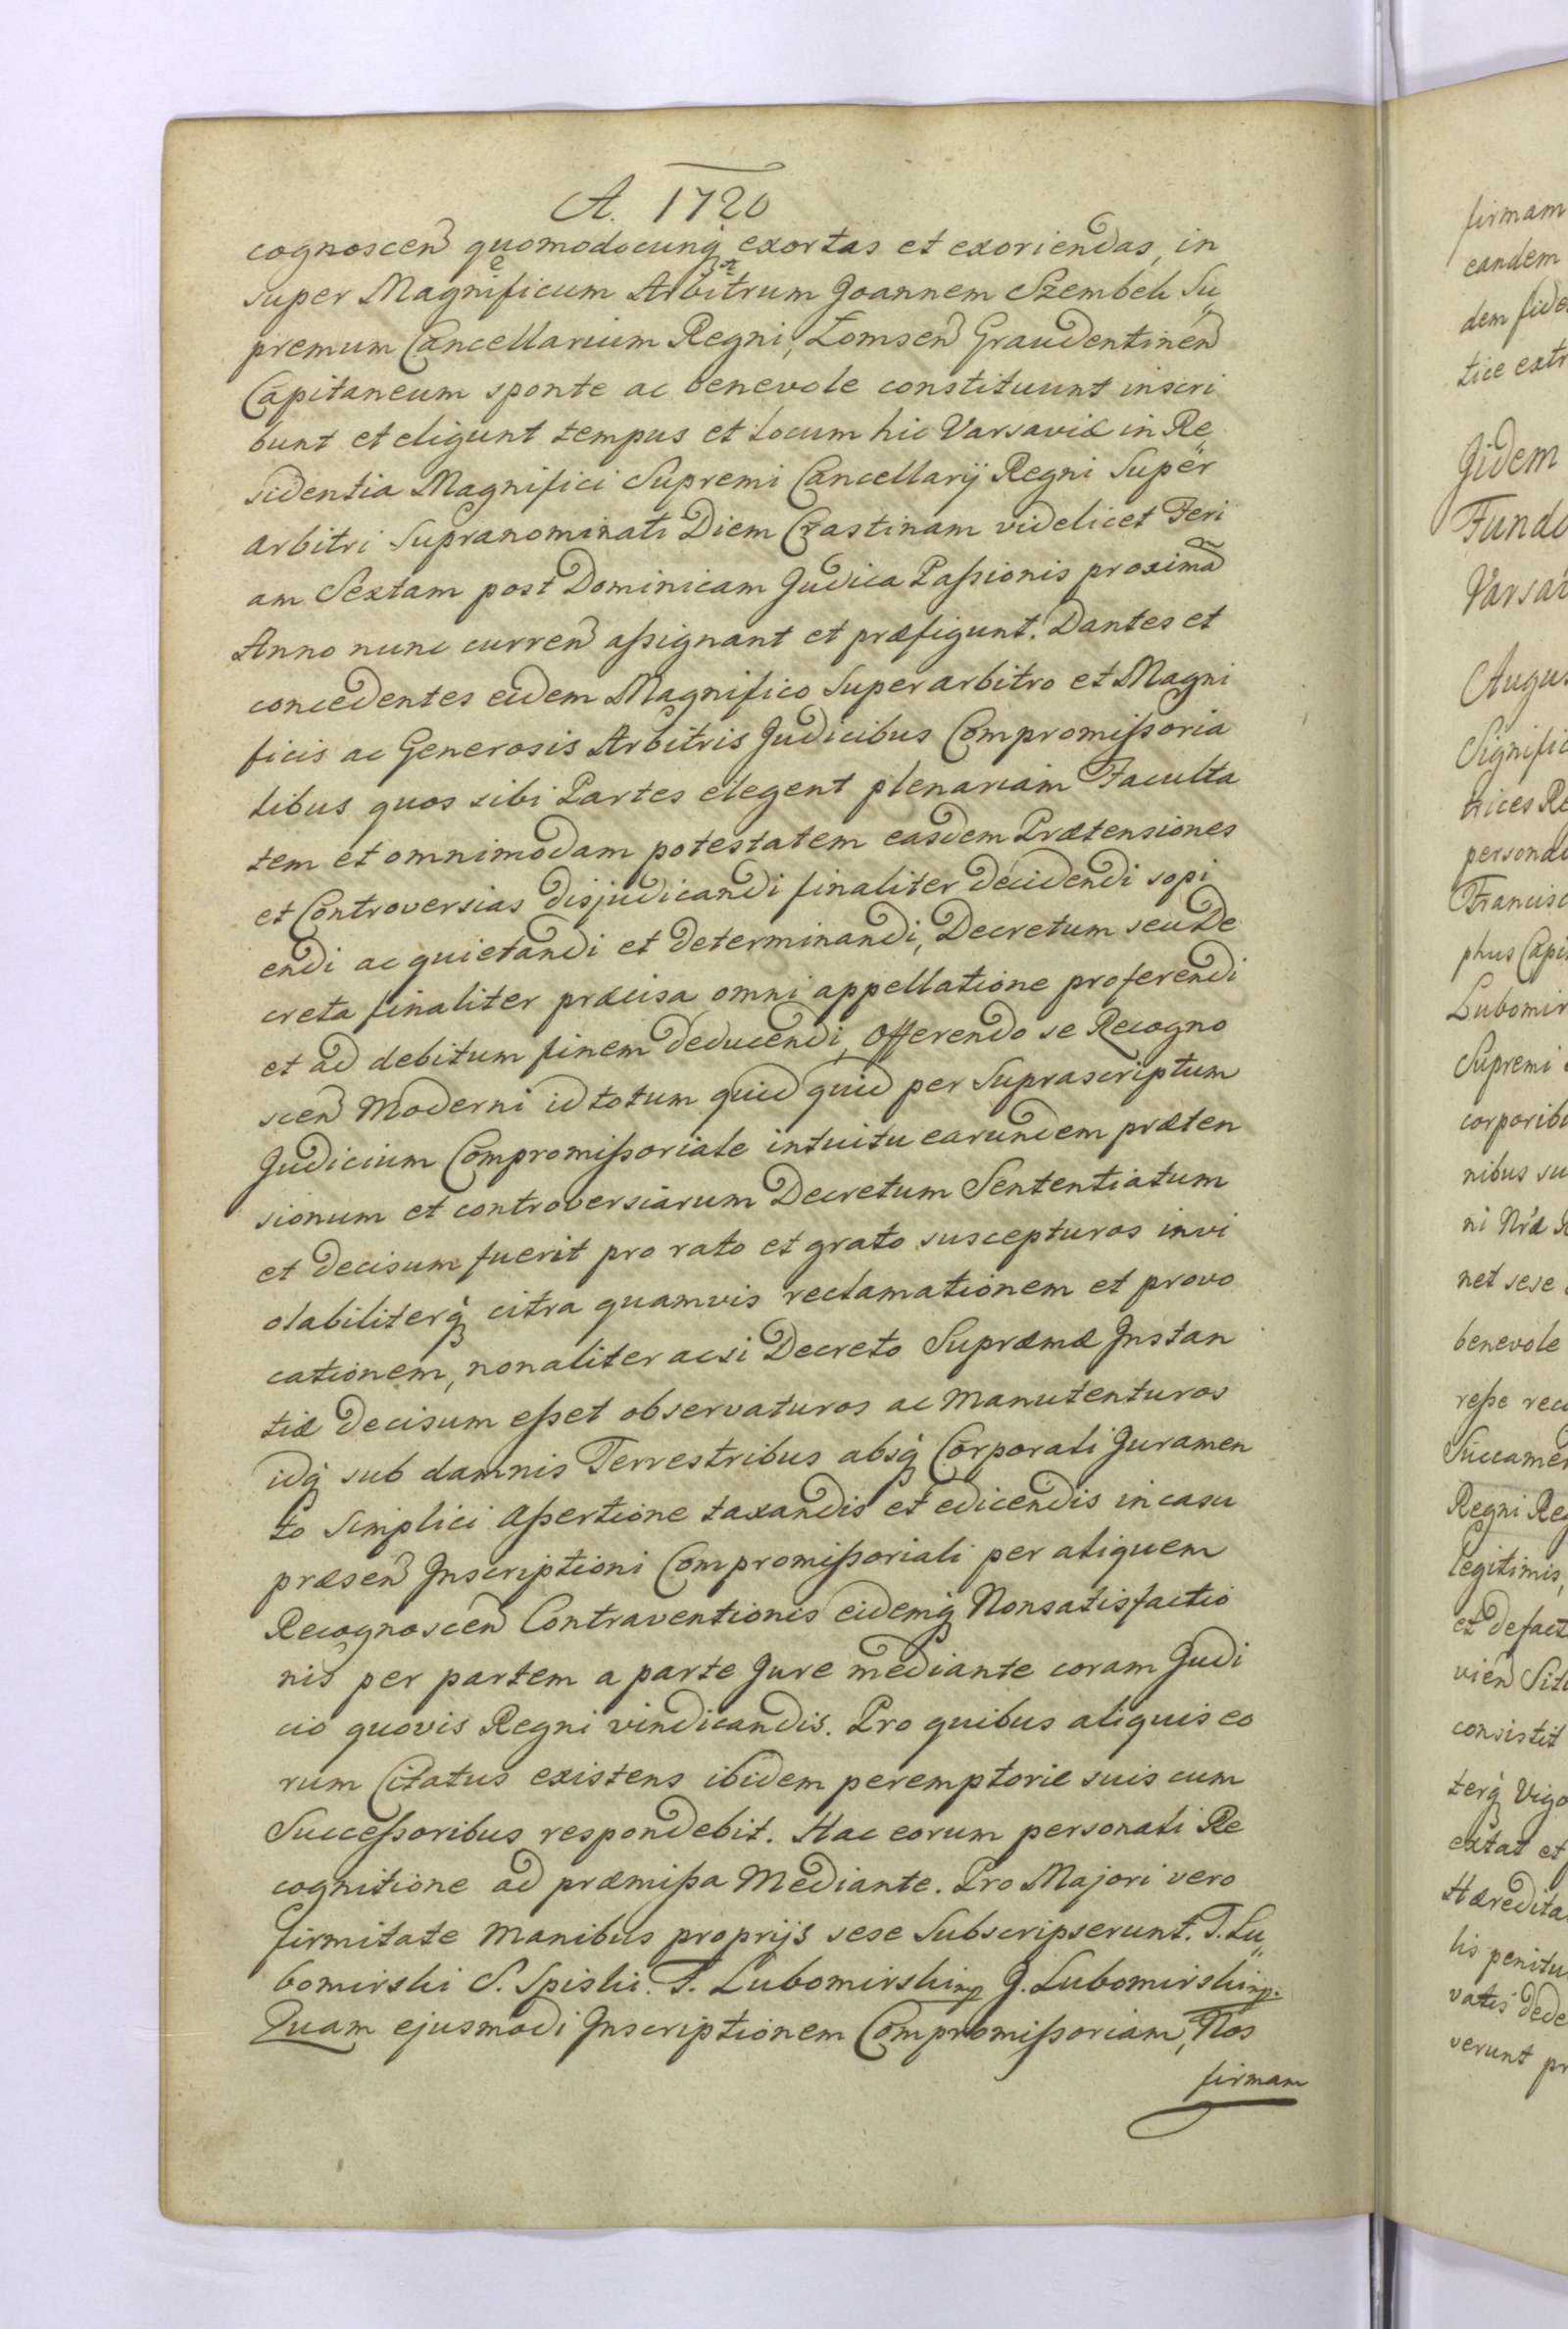 A. 1720
cognoscen quomodocunq exortas et exoriendas, in
super Magnificum Arbitrum Joannem Szembek Su„
premum Cancellarium Regni, Lomsen Graudentinen
Capitaneum sponte ac benevole constituunt inscri
bunt et eligunt tempus et Locum hic Varsaviæ in Re„
sidentia Magnifici Supremi Cancellarij Regni Super
arbitri Supranominati Diem Crastinam videlicet Feri
am Sextam post Dominicam Judica Paſsionis proximã
Anno nunc curren aſsignant et præfigunt. Dantes et
concedentes eidem Magnifico Superarbitro et Magni
ficis ac Generosis Arbitris Judicibus Compromiſsoria
libus quos sibi Partes elegent plenariam Faculta
tem et omnimodam potestatem easdem Prætensiones
et Controversias disjudicandi finaliter decidendi sopi
endi ac quietandi et determinandi, Decretum seu De
creta finaliter præcisa omni appellatione proferendi
et ad debitum finem deducendi, Offerendo se Recogno
scen Moderni id totum quid quid per Suprascriptum
Judicium Compromiſsoriale intuitu earundem præten
sionum et controversiarum Decretum Sententiatum
et decisum fuerit pro rato et grato suscepturos invi
olabiliterq citra quamvis reclamationem et provo
cationem, nonaliter acsi Decreto Supræmæ Instan
tiæ decisum eſset observaturos ac manutenturos
idq sub damnis Terrestribus absq Corporali Juramen
to Simplici Aſsertione taxandis et edicendis in casu
præsen Inscriptioni Compromiſsoriali per aliquem
Recognoscen Contraventionis eidemq Nonsatisfactio
nis per partem a parte Jure mediante coram Judi
cio quovis Regni vindicandis. Pro quibus aliquis eo
rum Citatus existens ibidem peremptorie suis cum
Succeſsoribus respondebit. Hac eorum personali Re
cognitione ad præmiſsa Mediante. Pro Majori vero
firmitate manibus proprijs sese Subscripserunt. T. Lu„
bomirski S. Spiski. F. Lubomirski mp J. Lubomirski mp.
Quam ejusmodi Inscriptionem Compromiſsoriam, Nos
firmam
firmam
eandem
tice extr
Jidem
Augus
Signific
trices Re
Francisc
phus Capi
Lubomir
Supremi
corporibu
nibus su
net sese
benevole
reſse rec
Regni Reg
legitimis,
et defact
consistit
terq Vigo
extat et
Hæredita
lis penitu
verunt pr